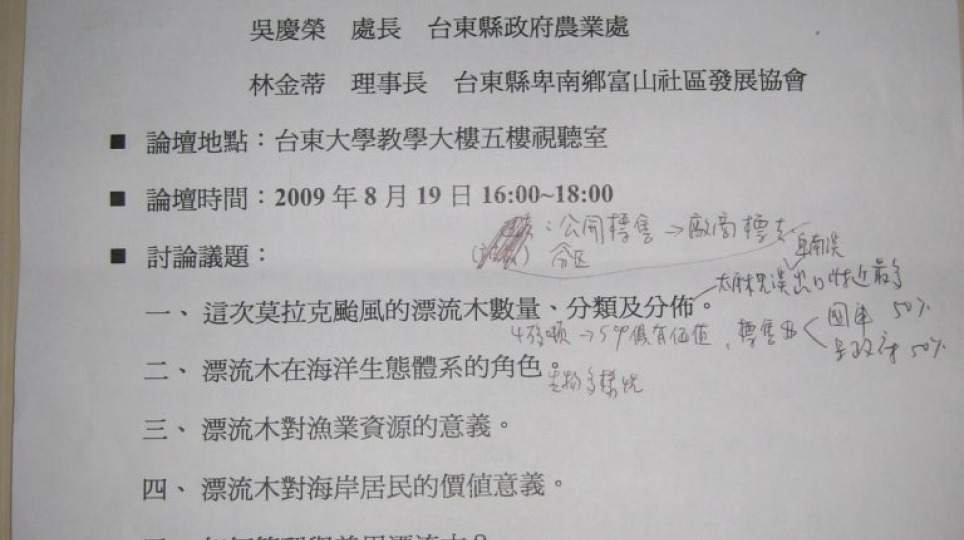 吳慶榮 處長 台東縣政府農業處
林金蒂 理事長 台東縣卑南鄉富山社區發展協會
■ 論壇地點：台東大學教學大樓五樓視聽室
■ 論壇時間：2009 年 8 月 19 日 16:00~18:00
：公開標售→廠商標
分区
■ 討論議題：
卑南溪
太麻里溪出口附近最多
一、這次莫拉克颱風的漂流木數量、分類及分佈。
→5%具有価值，標售
50%
縣政府 50%
二、漂流木在海洋生態體系的角色。
生物多樣性
三、漂流木對漁業資源的意義。
四、漂流木對海岸居民的價值意義。